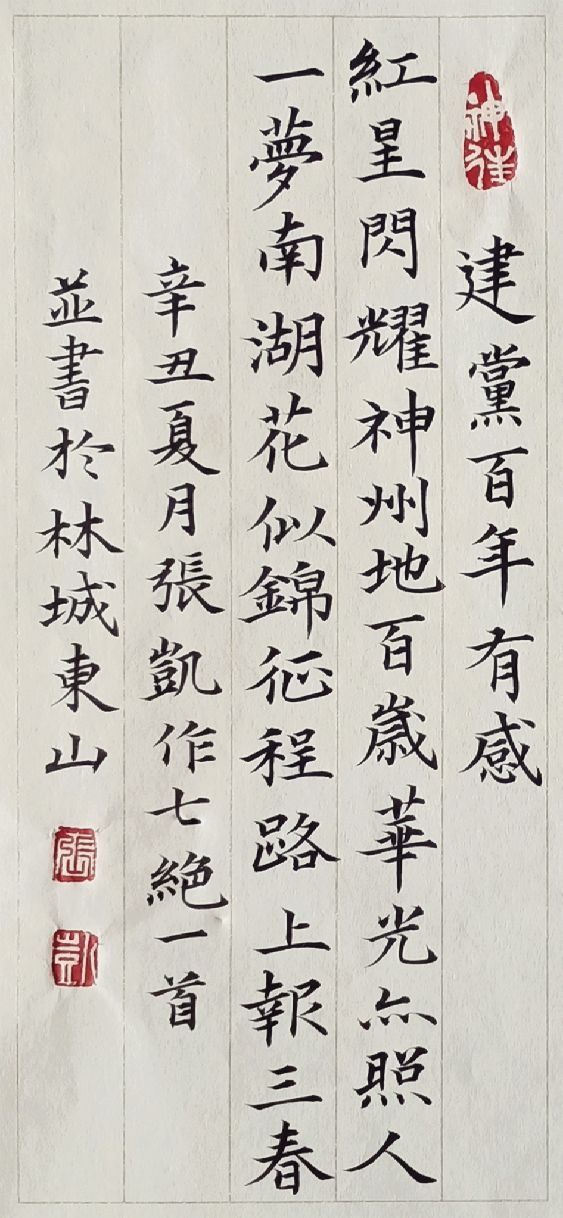 神往
建黨百年有感
紅星閃耀神州地百歲華光亦照人
一夢南湖花似錦征程路上報三春
辛丑夏月張凱作七絕一首
並書於林城東山
張
凱